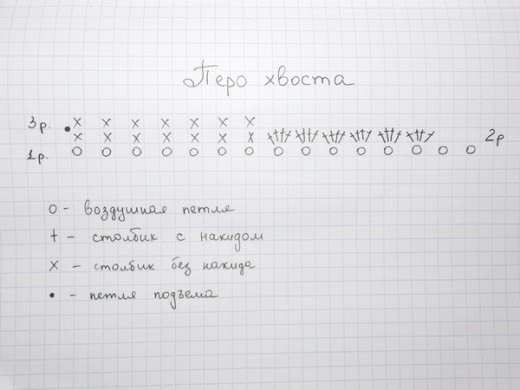 Перо хвоста
3р.
2р
1р.
о - воздушная петля
† - столбик с накидом
х - столбик без накида
• - петля подъема